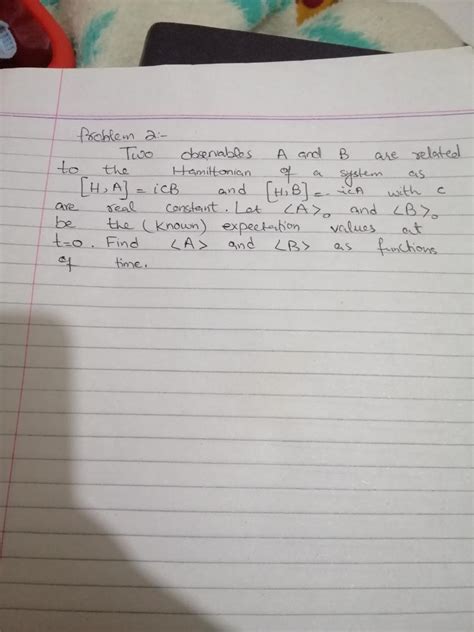 Problem 2:-
Two observables A and B are related
to the Hamiltonian of a system as
[H,A] = icB and [H,B] = -icA with c
are real constant. Let <A>₀ and <B>₀
be the (known) expectation values at
t=0. Find <A> and <B> as functions
of time.